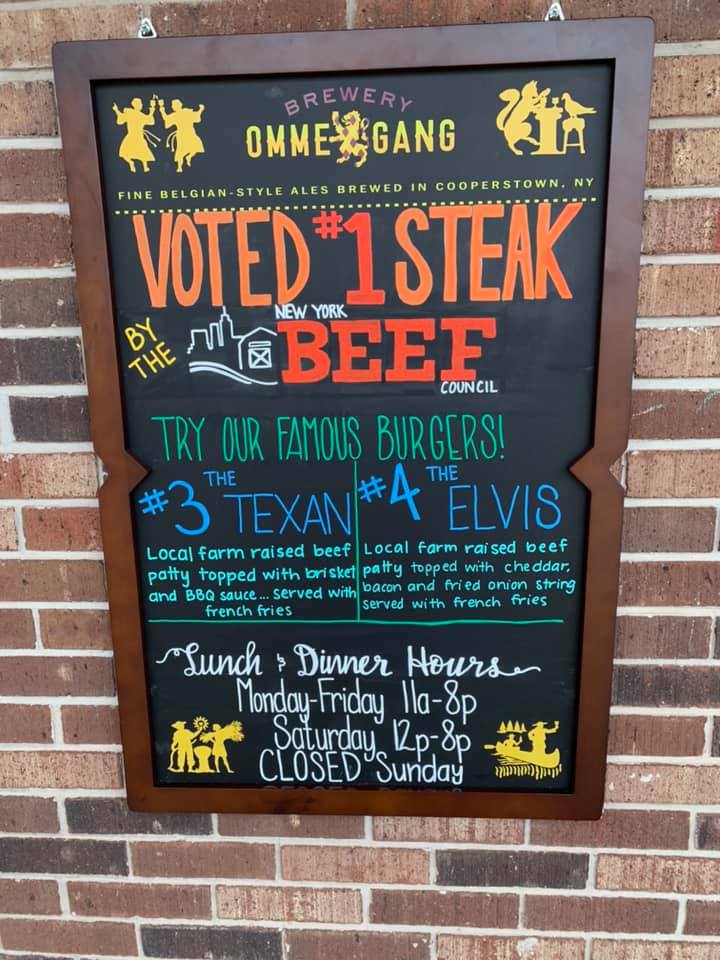 BREWERY
OMMEGANG
FINE BELGIAN-STYLE ALES BREWED IN COOPERSTOWN, NY
VOTED #1 STEAK
BY THE
NEW YORK
BEEF
COUNCIL
TRY OUR FAMOUS BURGERS!
#3 THE TEXAN
Local farm raised beef
patty topped with brisket
and BBQ sauce... served with
french fries
#4 THE ELVIS
Local farm raised beef
patty topped with cheddar,
bacon and fried onion string
served with french fries
Lunch & Dinner Hours
Monday-Friday 11a-8p
Saturday 12p-8p
CLOSED Sunday